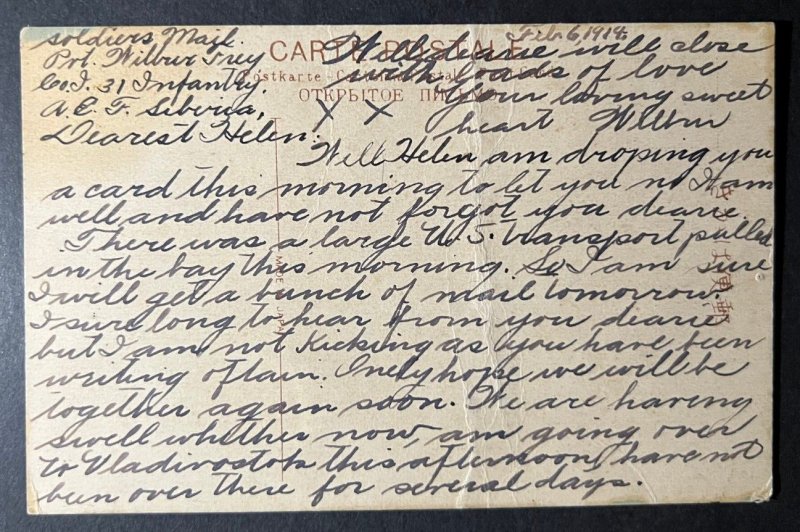 Feb. 6, 1919.
soldiers Mail.
Pvt. Wilbur Frey
Co. I. 31 Infantry.
A. E. F. Siberia,
CARTE POSTALE
Postkarte
ОТКРЫТОЕ
Dearest Helen.
Well Helen am droping you
a card this morning to let you no I am
well, and have not forgot you dearie.
There was a large U.S. transport pulled
in the bay this morning. So I am sure
I will get a bunch of mail tomorrow.
I sure long to hear from you dearie
but I am not Kicking as you have been
writing oftain. Onely hope we will be
together again soon. We are having
swell whether now, am going over
to Vladivostok this afternoon, have not
been over there for several days.
Well dearie will close
with loads of love
your loving sweet
heart Wilbur
X X
MADE IN JAPAN